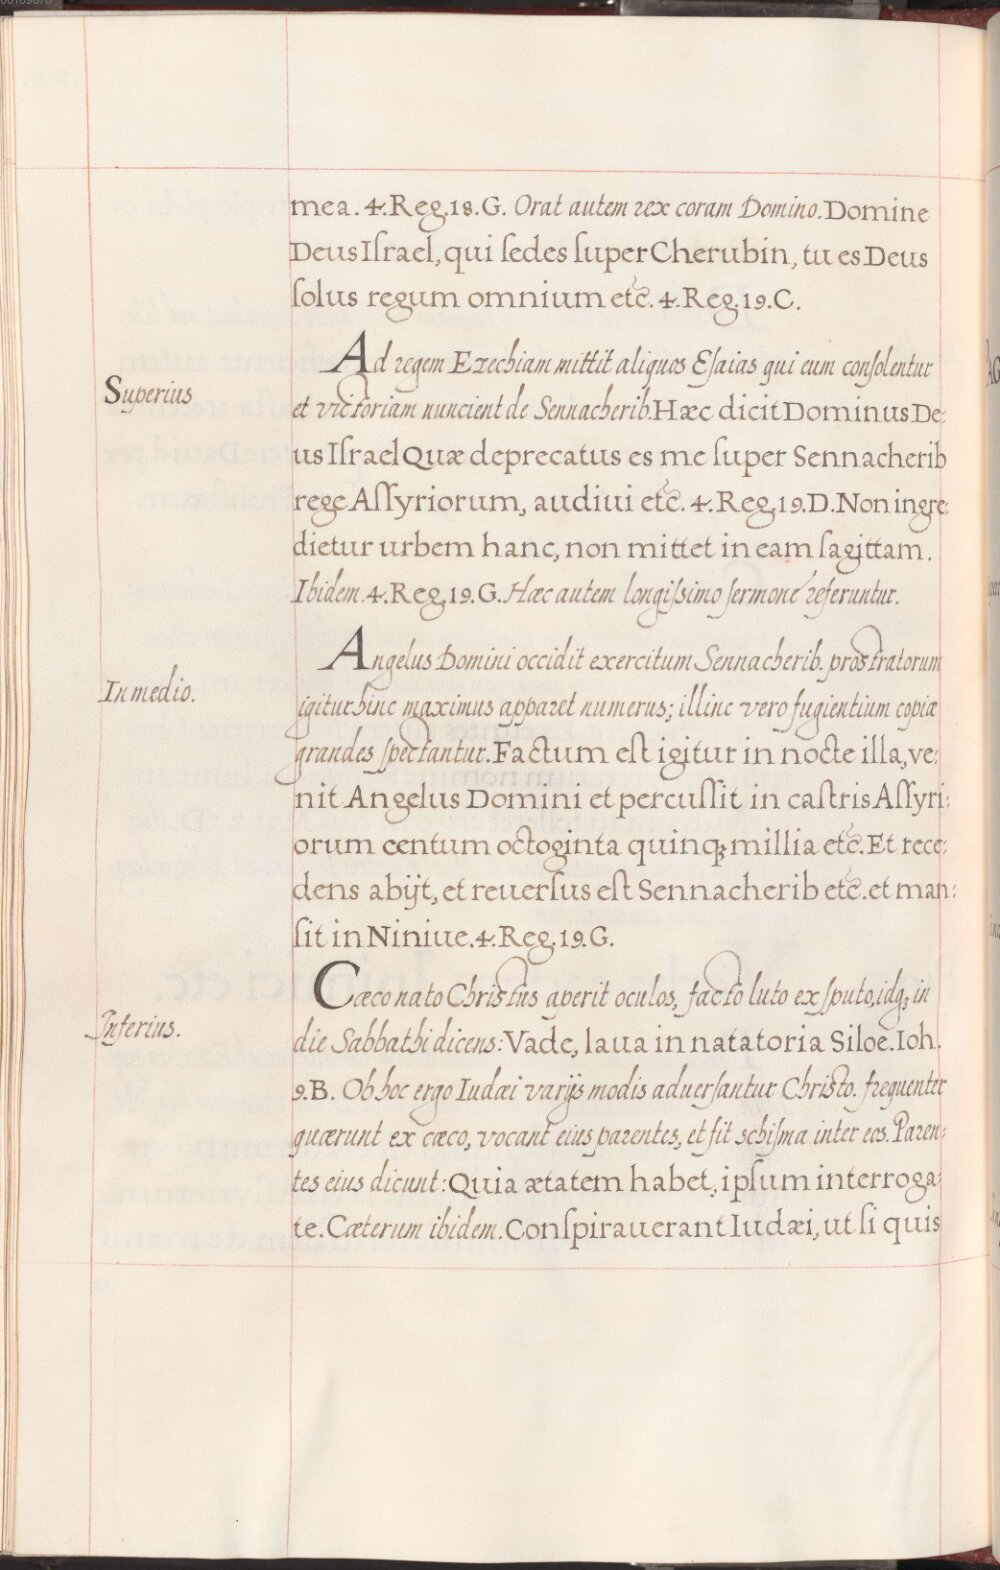 mea. 4. Reg. 18. G. Orat autem rex coram Domino. Domine
Deus Iſrael, qui ſedes ſuper Cherubin, tu es Deus
ſolus regum omnium etc. 4. Reg. 19. C.
Superius
Ad regem Ezechiam mittit aliquos Eſaias qui eum conſolentur
et victoriam nuncient de Sennacherib. Hæc dicit Dominus De:
us Iſrael Quæ deprecatus es me ſuper Sennacherib
rege Aſſyriorum, audiui etc. 4. Reg. 19. D. Non ingre:
dietur urbem hanc, non mittet in eam ſagittam.
Ibidem. 4. Reg. 19. G. Hæc autem longiſsimo ſermone referuntur.
In medio.
Angelus Domini occidit exercitum Sennacherib. prostratorum
igitur hinc maximus apparet numerus; illinc vero fugientium copiæ
grandes ſpectantur. Factum eſt igitur in nocte illa, ve:
nit Angelus Domini et percuſſit in caſtris Aſſyri:
orum centum octoginta quinqꝫ millia etc. Et rece:
dens abijt, et reuerſus eſt Sennacherib etc. et man:
ſit in Niniue. 4. Reg. 19. G.
Inferius.
Cæco nato Christus aperit oculos, facto luto ex ſputo, idqꝫ in
die Sabbathi dicens: Vade, laua in natatoria Siloe. Ioh.
9. B. Ob hoc ergo Iudæi varijs modis aduerſantur Christo. frequenter
quærunt ex cæco, vocant eius parentes, et fit schiſma inter eos. Paren:
tes eius dicunt: Quia ætatem habet, ipſum interroga:
te. Cæterum ibidem. Conſpirauerant Iudæi, ut ſi quis